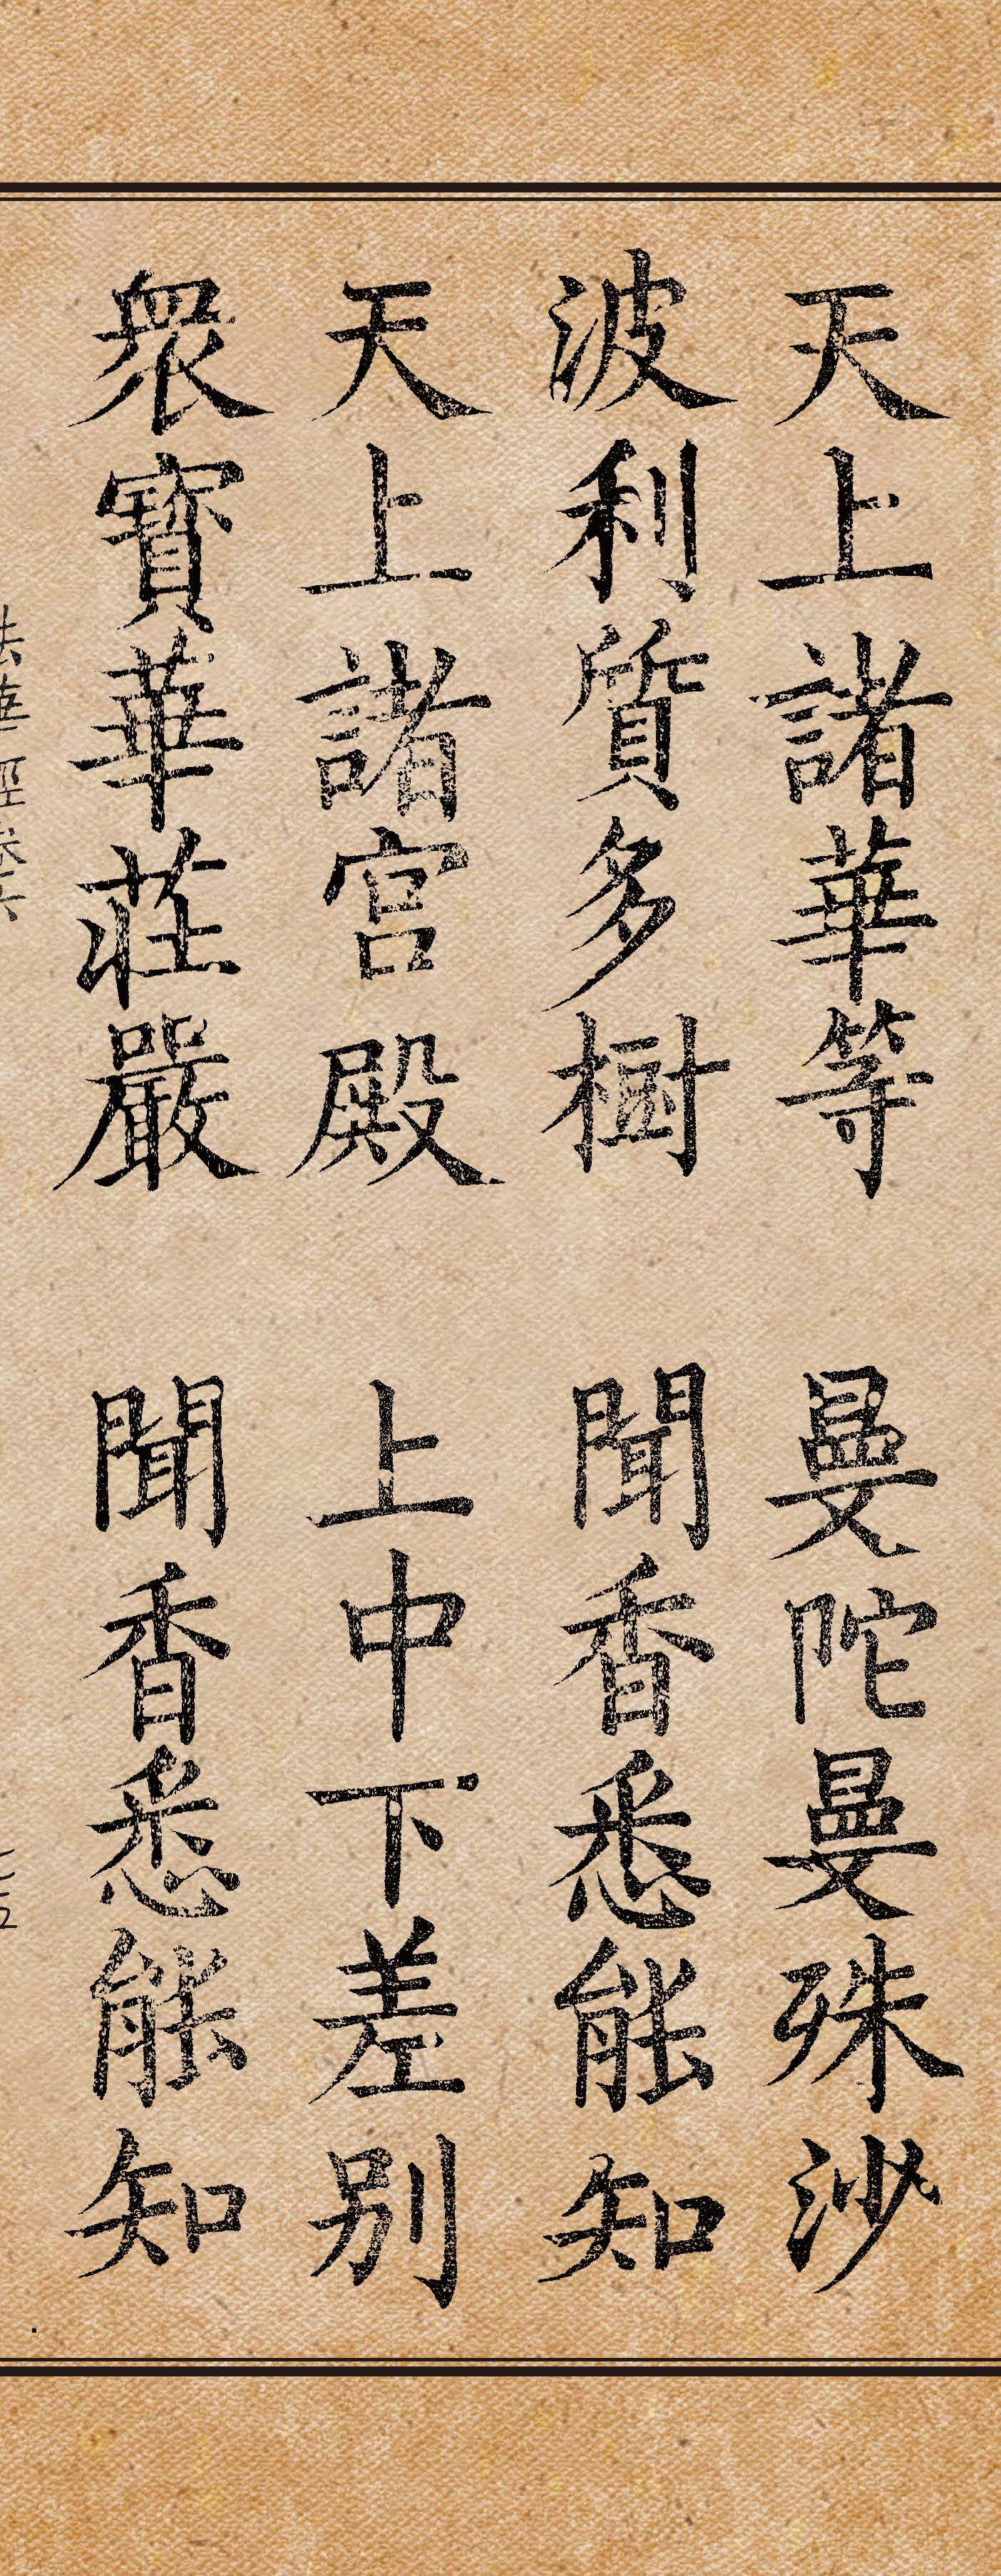 天上諸華等 曼陀曼殊沙
波利質多樹 聞香悉能知
天上諸宮殿 上中下差別
衆寶華莊嚴 聞香悉能知
法華經卷六